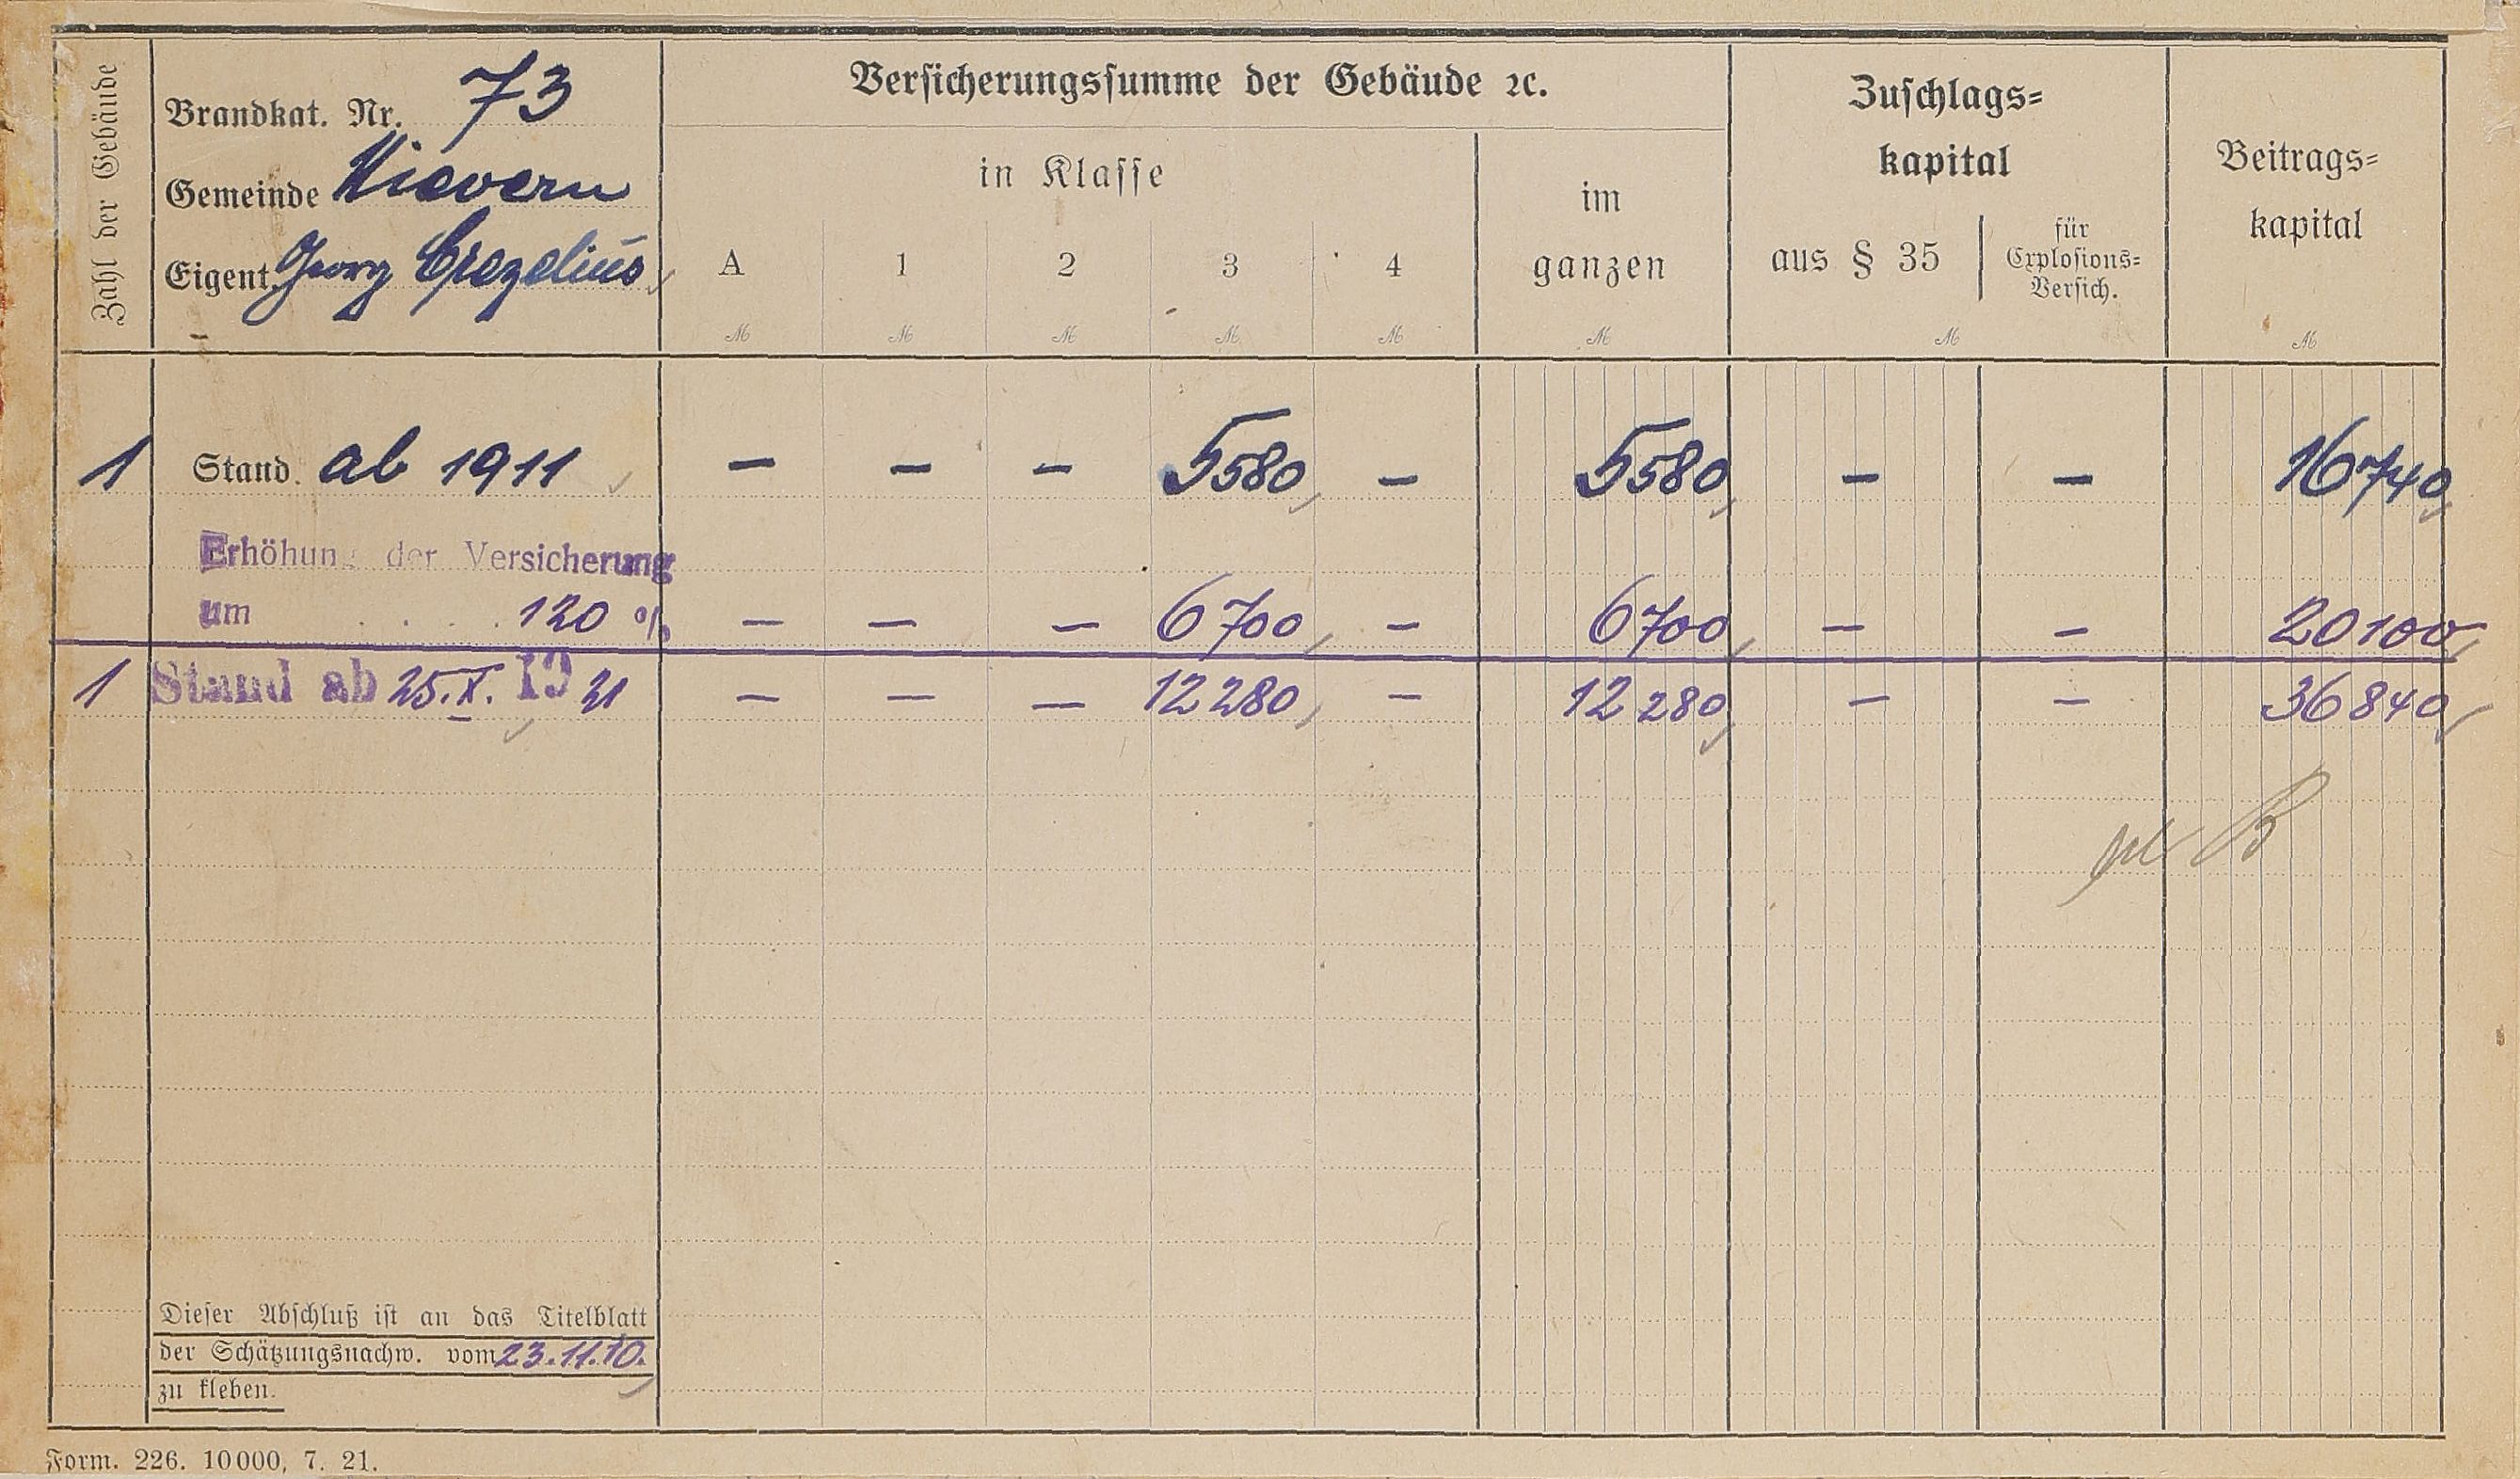 Zahl der Gebäude
Brandkat. Nr. 73
Gemeinde Nievern
Eigent. Georg Crezelius
Versicherungssumme der Gebäude ꝛc.
in Klasse
A 1 2 3 4
ℳ ℳ ℳ ℳ ℳ
im
ganzen
ℳ
Zuschlags-
kapital
aus § 35
für
Explosions-
Versich.
ℳ
Beitrags-
kapital
ℳ
1 Stand ab 1911 – – – 5580 – 5580 – – 16740
Erhöhung der Versicherung
um . . . . 120 % – – – 6700 – 6700 – – 20100
1 Stand ab 25.X. 1921 – – – 12280 – 12280 – – 36840
B
Dieser Abschluß ist an das Titelblatt
der Schätzungsnachw. vom 23.11.10.
zu kleben.
Form. 226. 10000, 7. 21.